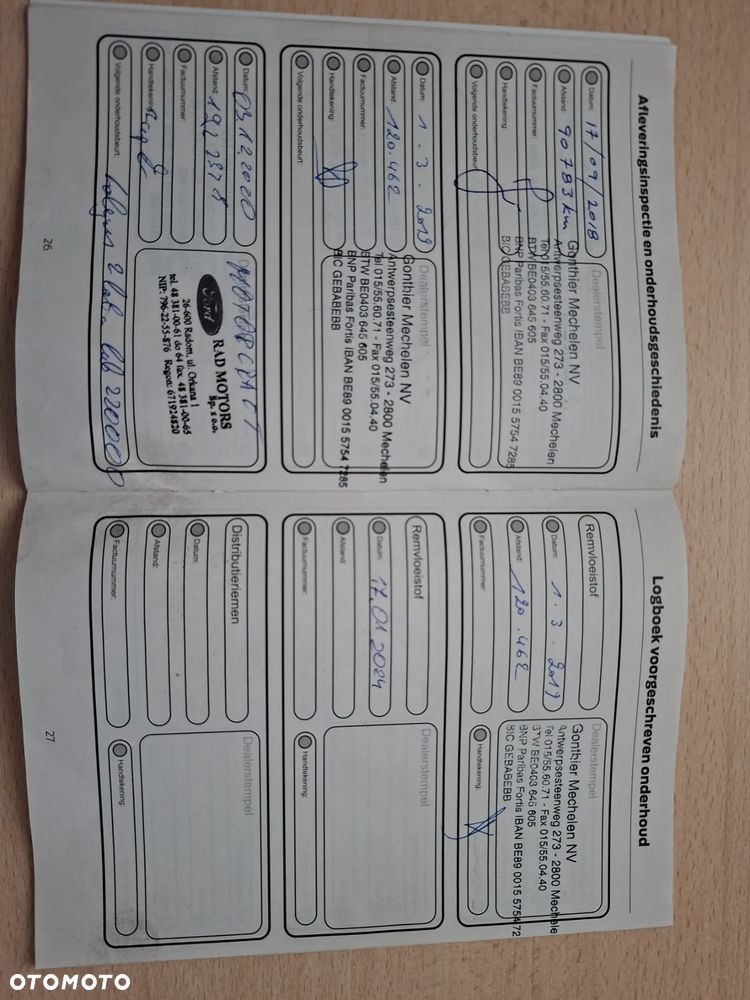 Afleveringsinspectie en onderhoudsgeschiedenis
Datum: 17/09/2018
Afstand: 90783 km
Factuurnummer:
Handtekening:
Volgende onderhoudsbeurt:
Dealerstempel
Gonthier Mechelen NV
Antwerpsesteenweg 273 - 2800 Mechelen
Tel 015/55.60.71 - Fax 015/55.04.40
BTW BE0403 645 605
BNP Paribas Fortis IBAN BE89 0015 5754 7285
BIC GEBABEBB
Datum: 1 . 3 . 2019
Afstand: 120.462
Factuurnummer:
Handtekening:
Volgende onderhoudsbeurt:
Dealerstempel
Gonthier Mechelen NV
Antwerpsesteenweg 273 - 2800 Mechelen
Tel 015/55.60.71 - Fax 015/55.04.40
BTW BE0403 645 605
BNP Paribas Fortis IBAN BE89 0015 5754 7285
BIC GEBABEBB
Datum: 03.12.2020
Afstand:
Factuurnummer:
Handtekening:
Volgende onderhoudsbeurt: 2 lata lub 220000
MOTORCRAFT
Ford
RAD MOTORS
Sp. z o.o.
26-600 Radom, ul. Orkana 1
tel. 48 381-00-61 do 64 fax. 48 381-00-65
NIP: 796-22-55-876 Regon: 671924820
26
Logboek voorgeschreven onderhoud
Remvloeistof
Datum: 1 . 3 . 2019
Afstand: 120.462
Factuurnummer:
Dealerstempel
Gonthier Mechelen NV
Antwerpsesteenweg 273 - 2800 Mechele
Tel 015/55.60.71 - Fax 015/55.04.40
BTW BE0403 645 605
BNP Paribas Fortis IBAN BE89 0015 5754 72
BIC GEBABEBB
Handtekening:
Remvloeistof
Datum: 17.01.2024
Afstand:
Factuurnummer:
Dealerstempel
Handtekening:
Distributieriemen
Datum:
Afstand:
Factuurnummer:
Dealerstempel
Handtekening:
27
OTOMOTO